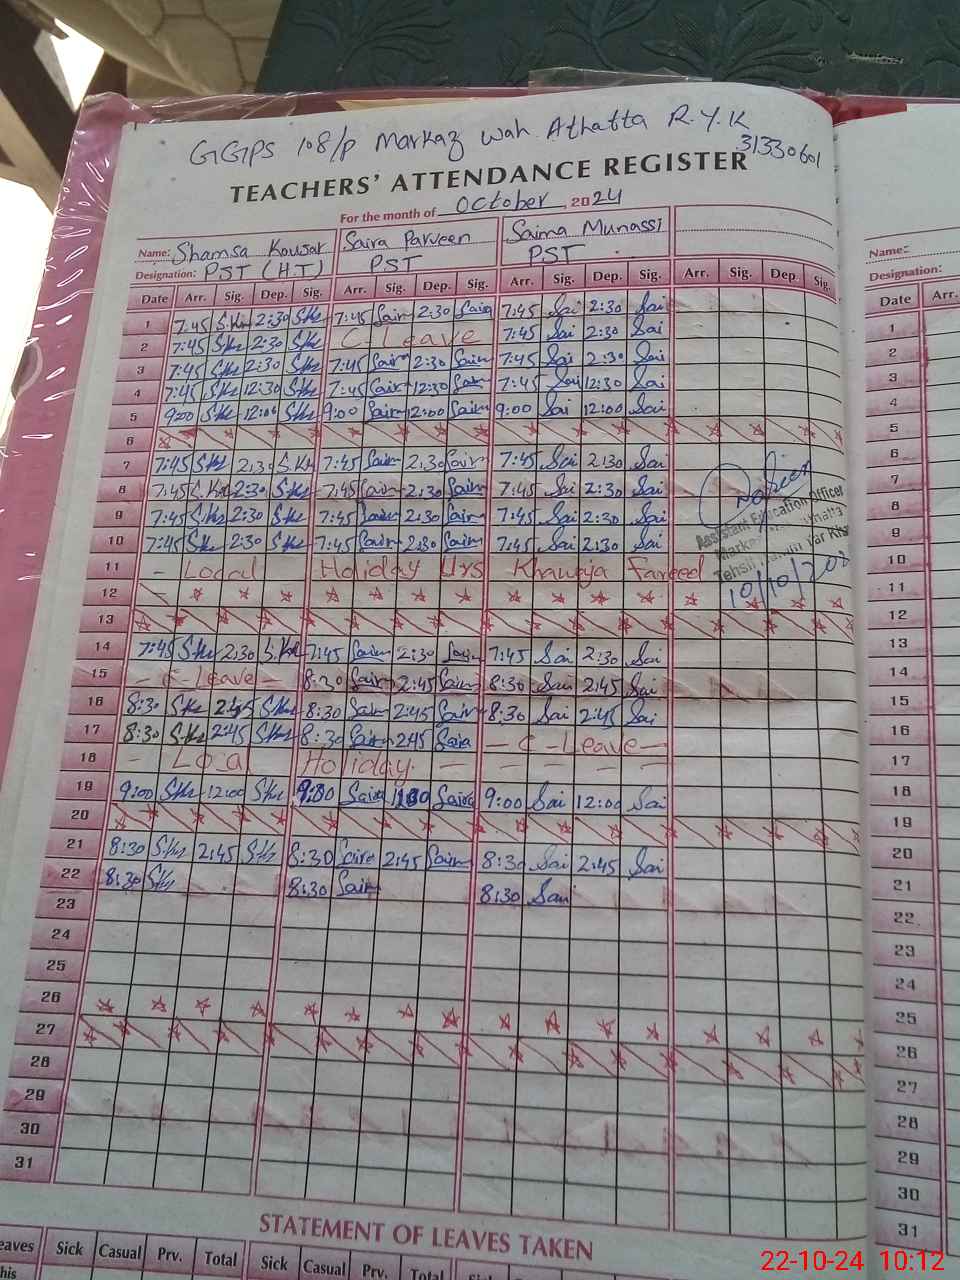 GGPS 108/P Markaz Wah Athatta R.Y.K
31330601
TEACHERS' ATTENDANCE REGISTER
For the month of October, 2024
Name: Shamsa Kousar Saira Parveen Saima Munassi
Designation: PST (H.T) PST PST
Date Arr. Sig. Dep. Sig. Arr. Sig. Dep. Sig. Arr. Sig. Dep. Sig. Arr. Sig. Dep. Sig.
1 7:45 S.Kh 2:30 SKh 7:45 Sair 2:30 Saira 7:45 Sai 2:30 Sai
2 7:45 SKh 2:30 SKh C-Leave 7:45 Sai 2:30 Sai
3 7:45 SKh 2:30 SKh 7:45 Sair 2:30 Sair 7:45 Sai 2:30 Sai
4 7:45 SKh 12:30 SKh 7:45 Sair 12:30 Sair 7:45 Sai 12:30 Sai
5 9:00 SKh 12:00 SKh 9:00 Sair 12:00 Sair 9:00 Sai 12:00 Sai
6
7 7:45 SKh 2:30 S.Kh 7:45 Sair 2:30 Sair 7:45 Sai 2:30 Sai
8 7:45 S.Kh 2:30 SKh 7:45 Sair 2:30 Sair 7:45 Sai 2:30 Sai
9 7:45 SKh 2:30 SKh 7:45 Sair 2:30 Sair 7:45 Sai 2:30 Sai
10 7:45 SKh 2:30 SKh 7:45 Sair 2:30 Sair 7:45 Sai 2:30 Sai
Assistant Education Officer
Markaz
Tehsil Rahim Yar Khan
10/10/202
11 - Local Holiday Urs Khawaja Fareed
12
13
14 7:45 SKh 2:30 S.Kh 7:45 Sair 2:30 Sair 7:45 Sai 2:30 Sai
15 - C-Leave - 8:30 Sair 2:45 Sair 8:30 Sai 2:45 Sai
16 8:30 SKh 2:45 SKh 8:30 Sair 2:45 Sair 8:30 Sai 2:45 Sai
17 8:30 SKh 2:45 SKh 8:30 Sair 2:45 Saira - C-Leave -
18 - Local Holiday - - - - - -
19 9:00 SKh 12:00 SKh Saira Saira 9:00 Sai 12:00 Sai
20
21 8:30 SKh 2:45 SKh 8:30 Saira 2:45 Sair 8:30 Sai 2:45 Sai
22 8:30 SKh 8:30 Sair 8:30 Sai
23
24
25
26
27
28
29
30
31
STATEMENT OF LEAVES TAKEN
eaves Sick Casual Prv. Total Sick Casual Prv. Total
his
Name:
Designation:
Date Arr.
1
2
3
4
5
6
7
8
9
10
11
12
13
14
15
16
17
18
19
20
21
22
23
24
25
26
27
28
29
30
31
22-10-24 10:12